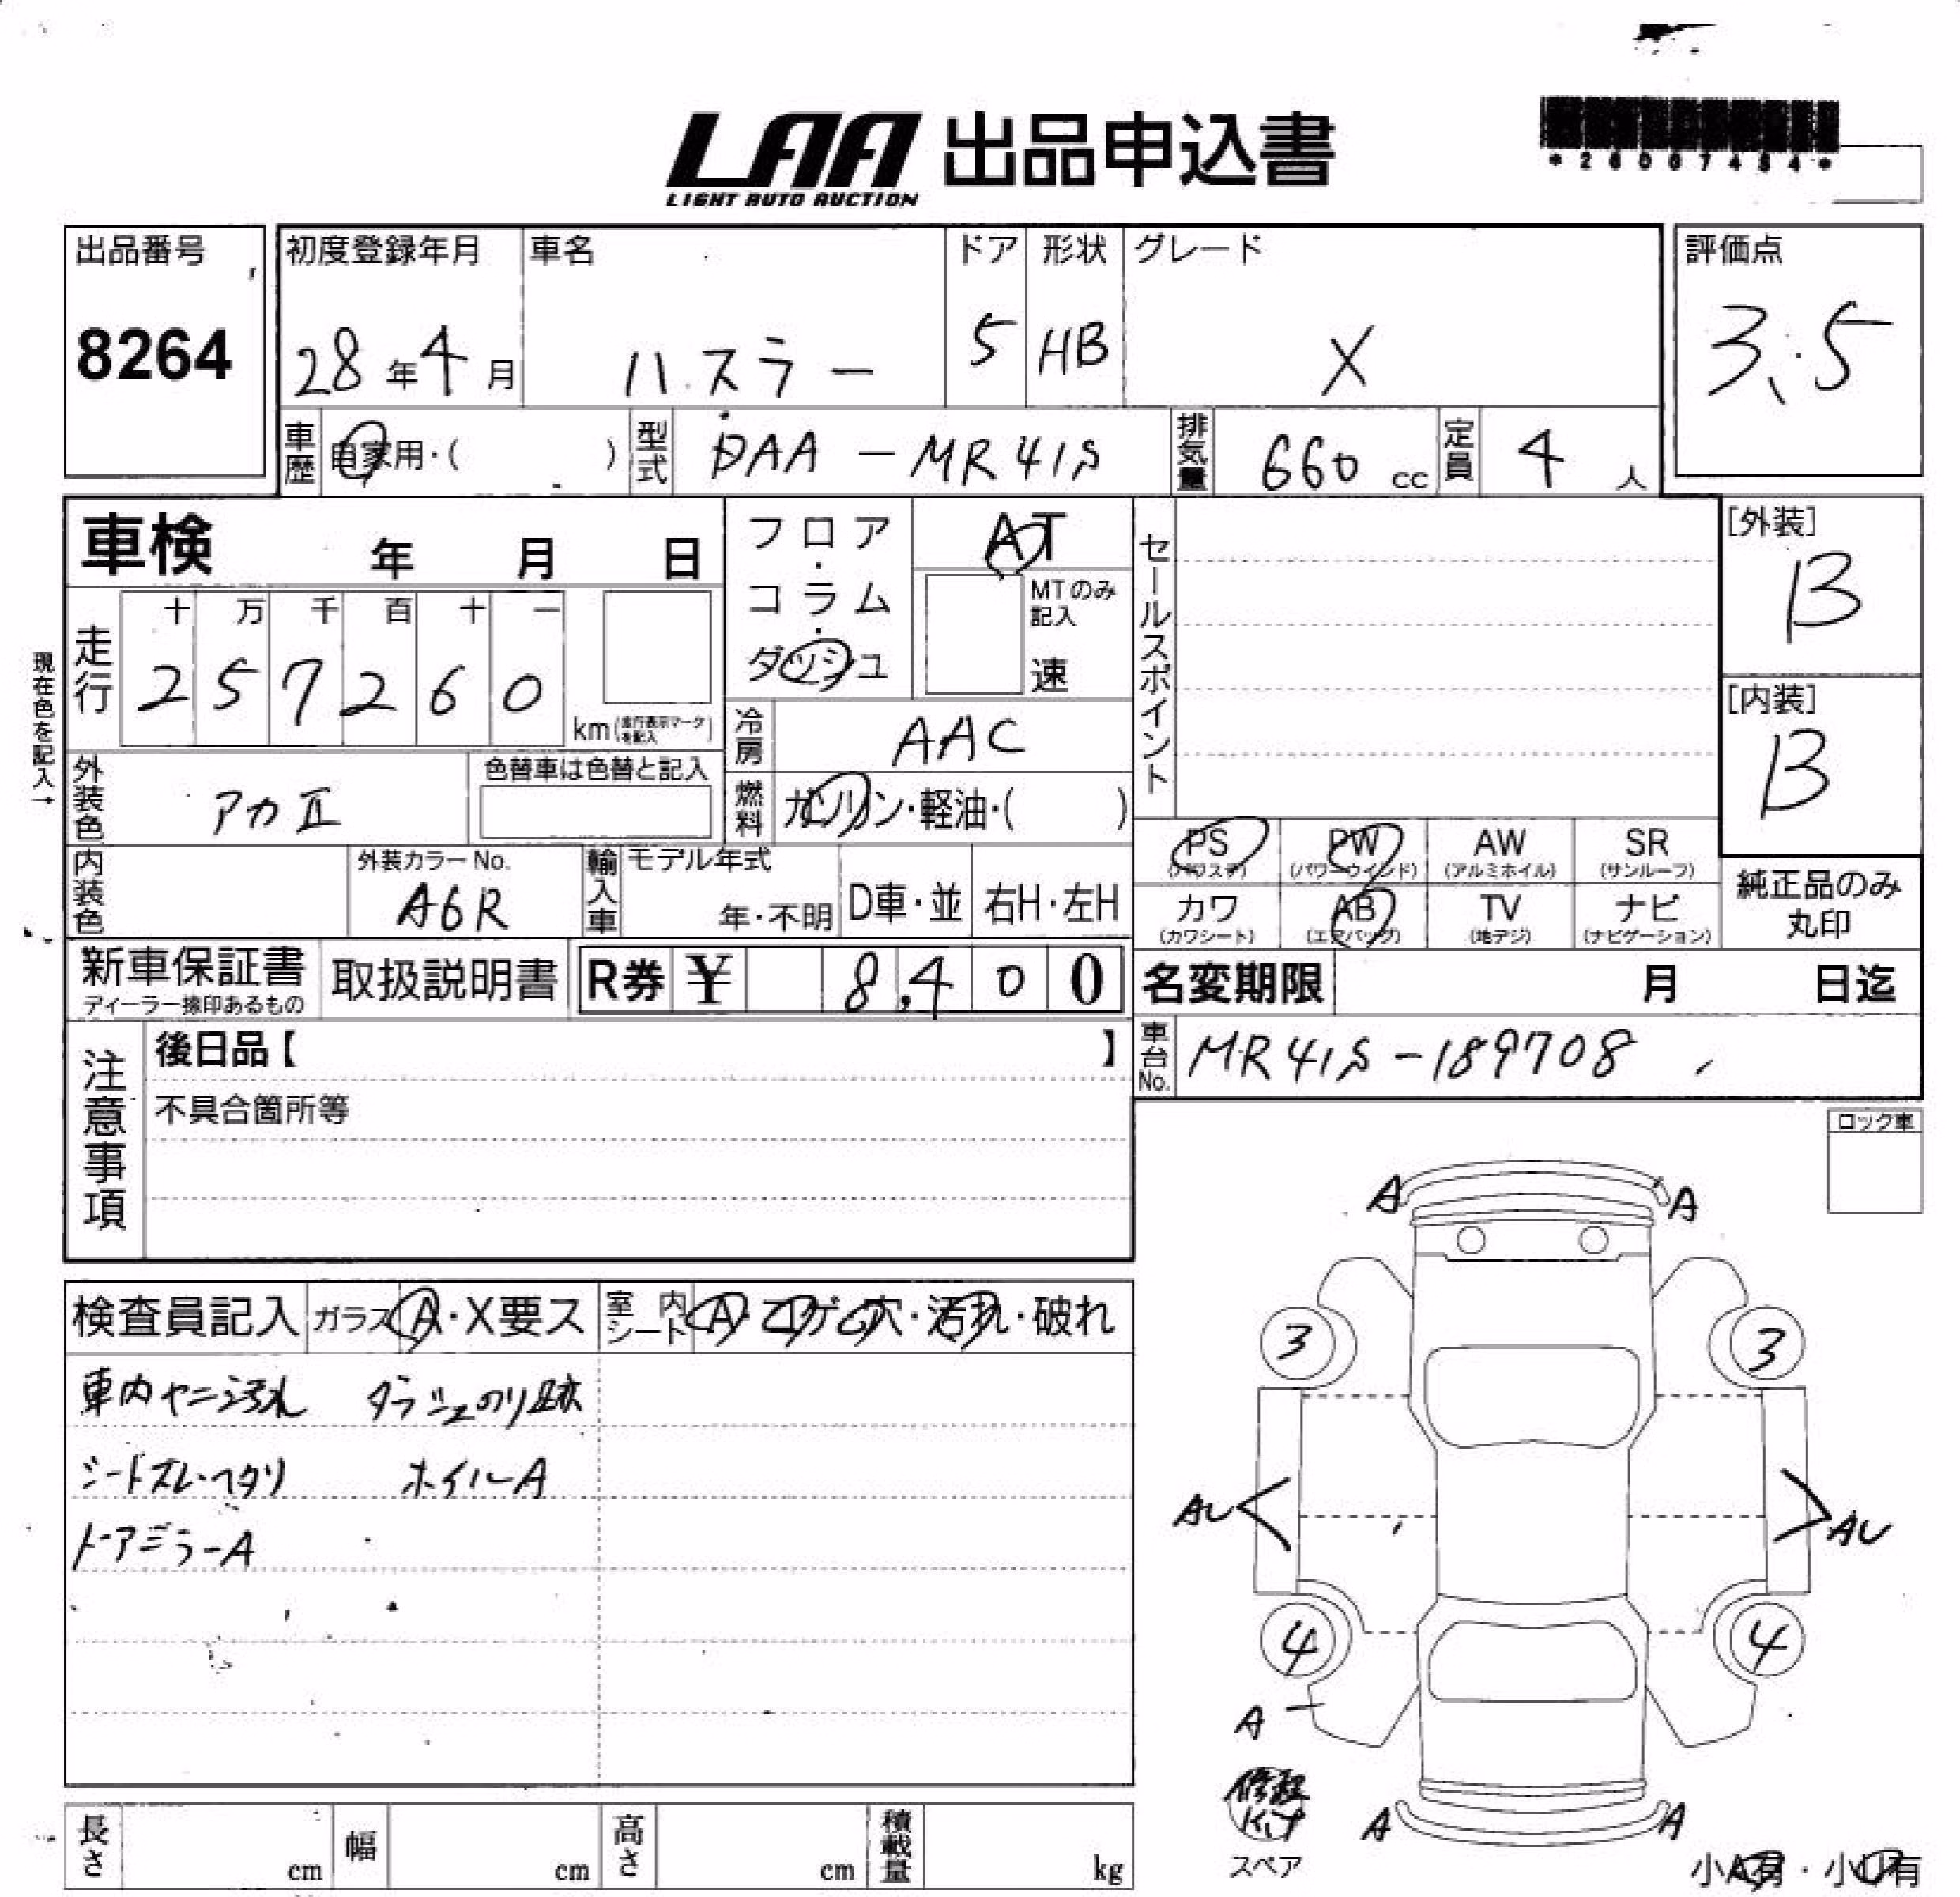 LAA 出品申込書
LIGHT AUTO AUCTION
出品番号
8264
初度登録年月
28年4月
車名
ハスラー
ドア
5
形状
HB
グレード
X
評価点
3.5
車歴 自家用・( )
型式 DAA-MR41S
排気量 660 cc
定員 4 人
車検 年 月 日
フロア・コラム・ダッシュ
AT
MTのみ記入
速
セールスポイント
[外装]
B
[内装]
B
現在色を記入→
走行
十 万 千 百 十 一
2 5 7 2 6 0
km(走行表示マークを記入)
冷房 AAC
外装色 アカⅡ
色替車は色替と記入
燃料 ガソリン・軽油・( )
内装色
外装カラーNo.
A6R
輸入車 モデル年式
年・不明
D車・並
右H・左H
PS
(パワステ)
PW
(パワーウインド)
AW
(アルミホイル)
SR
(サンルーフ)
カワ
(カワシート)
AB
(エアバック)
TV
(地デジ)
ナビ
(ナビゲーション)
純正品のみ
丸印
新車保証書
ディーラー捺印あるもの
取扱説明書
R券 ¥ 8,400
名変期限 月 日迄
注意事項
後日品【 】
不具合箇所等
車台No. MR41S-189708
ロック車
検査員記入
ガラス A・X要ス
室内シート A・コゲ・穴・汚れ・破れ
車内ヤニ汚れ
シートズレ・ヘタリ ホイルA
ドアミラーA
A
A
3
3
AU
AU
4
4
A
A
A
スペア
小A有・小U有
長さ cm
幅 cm
高さ cm
積載量 kg